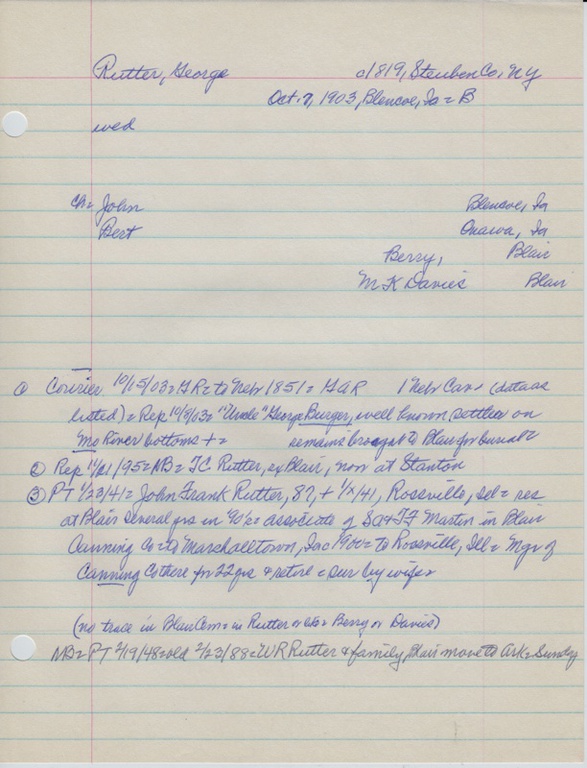 Rutter, George c1819, Steuben Co, NY
Oct. 7, 1903, Blencoe, Ia = B
wed
ch = John Blencoe, Ia
Bert Onawa, Ia
Berry, Blair
M K Davies Blair
① Courier 10/15/03 = GR = to Nebr 1851 = GAR 1 Nebr Cav = (data as
listed) = Rep 10/8/03 = "Uncle" George Burger, well known settler on
Mo River bottoms + = remains brought to Blair for burial =
② Rep 11/21/95 = NB = TC Rutter, ex Blair, now at Stanton
③ PT 1/23/41 = John Frank Rutter, 87, + 1/X/41, Rossville, Ill = res
at Blair several yrs in 90's = associate of Martin in Blair
Canning Co = to Marshalltown, Ia = 1900 = to Rossville, Ill = Mgr of
Canning Co there for 22 yrs & retire = sur by wife =
(no trace in Blair Cem = in Rutter or Berry or Davies)
NB = PT 2/19/48 = old 2/23/88 = WR Rutter & family, Blair move to Ark = Sunday